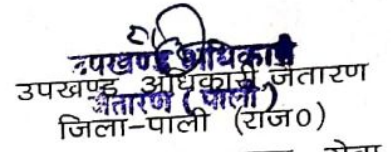 उपखण्ड अधिकारी
उपखण्ड अधिकारी, जैतारण
जैतारण (पाली)
जिला-पाली (राज०)